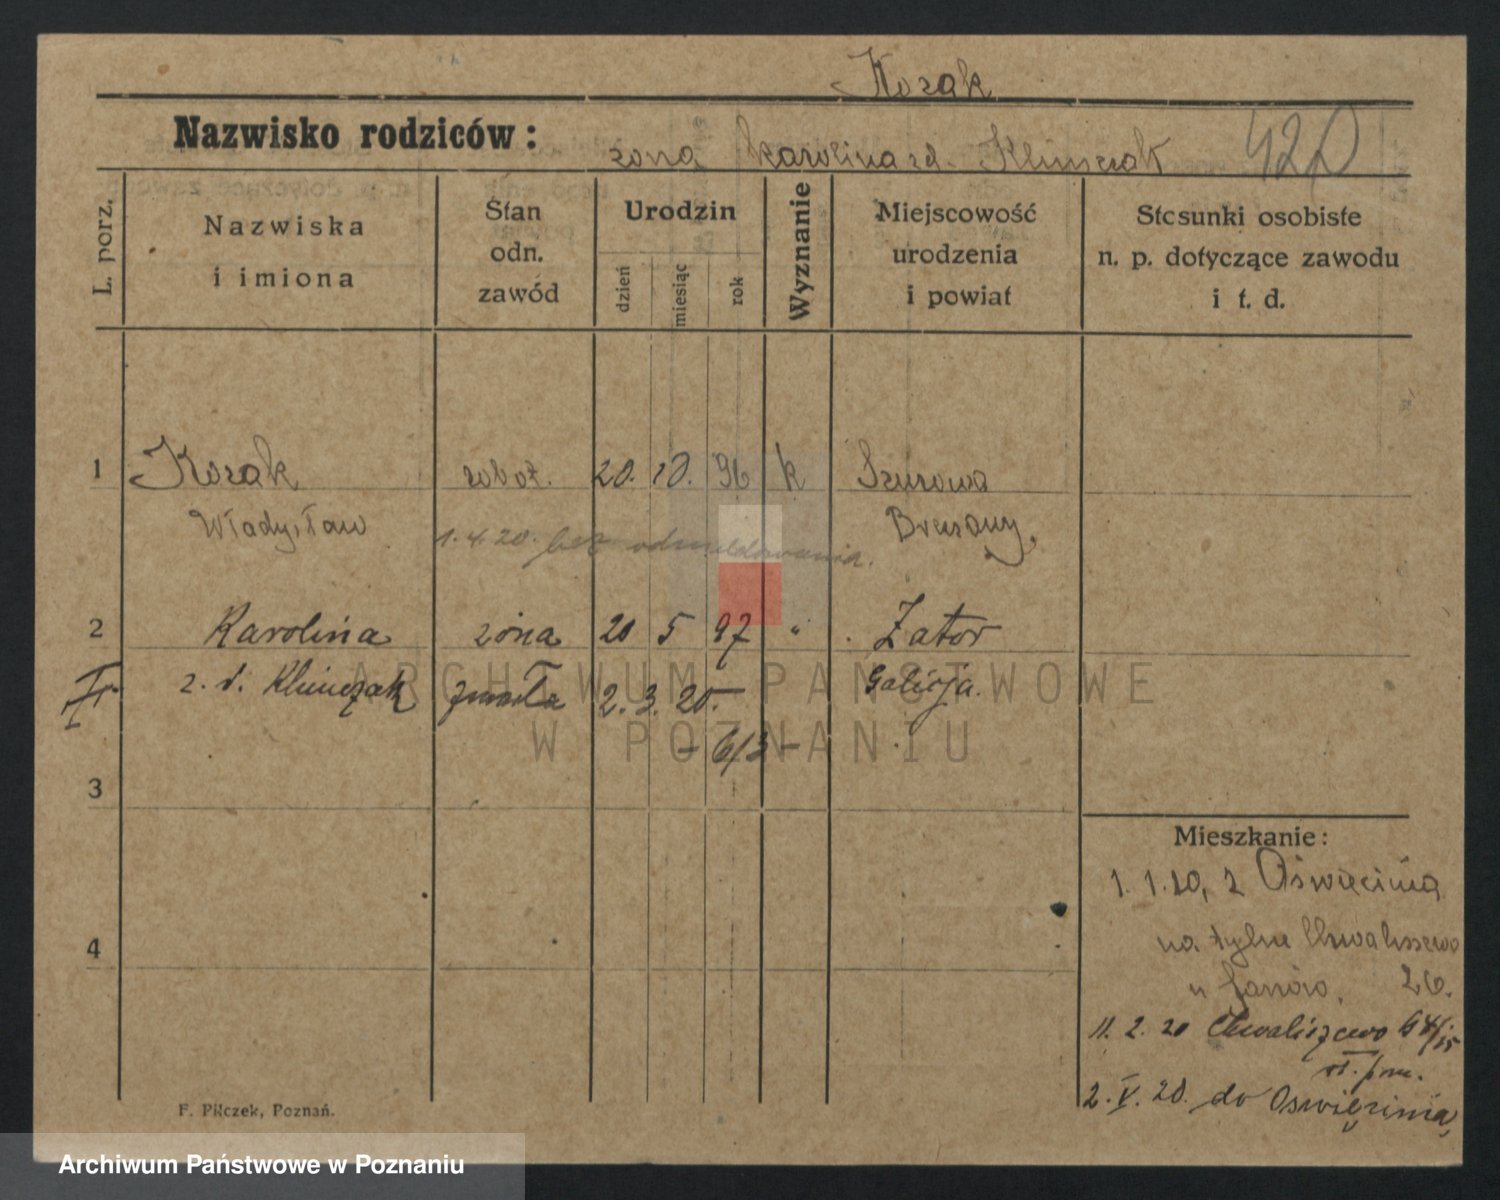 Kozak
Nazwisko rodziców:
zona Karolina zd. Klimczak 420
L. porz.
Nazwiska
i imiona
Stan
odn.
zawód
Urodzin
dzień
miesiąc
rok
Wyznanie
Miejscowość
urodzenia
i powiat
Stosunki osobiste
n. p. dotyczące zawodu
i t. d.
1 Kozak robot. 20. 10. 96 k Szurowa
Władysław Brzesony,
1.4.20. bez odmeldowania.
2 Karolina żona 20 5 97 " Zator
z. d. Klimczak zmarła 2. 3. 20. Galicja.
- 6/3 -
3
Mieszkanie:
1. 1. 20, z Oświęcimia
na tylne Chwaliszewo
u 26.
4
11. 2. 20 Chwaliszewo 64/15
2. V. 20. do Oswięcimia,
F. Pilczek, Poznań.
ARCHIWUM PAŃSTWOWE
W POZNANIU
Archiwum Państwowe w Poznaniu